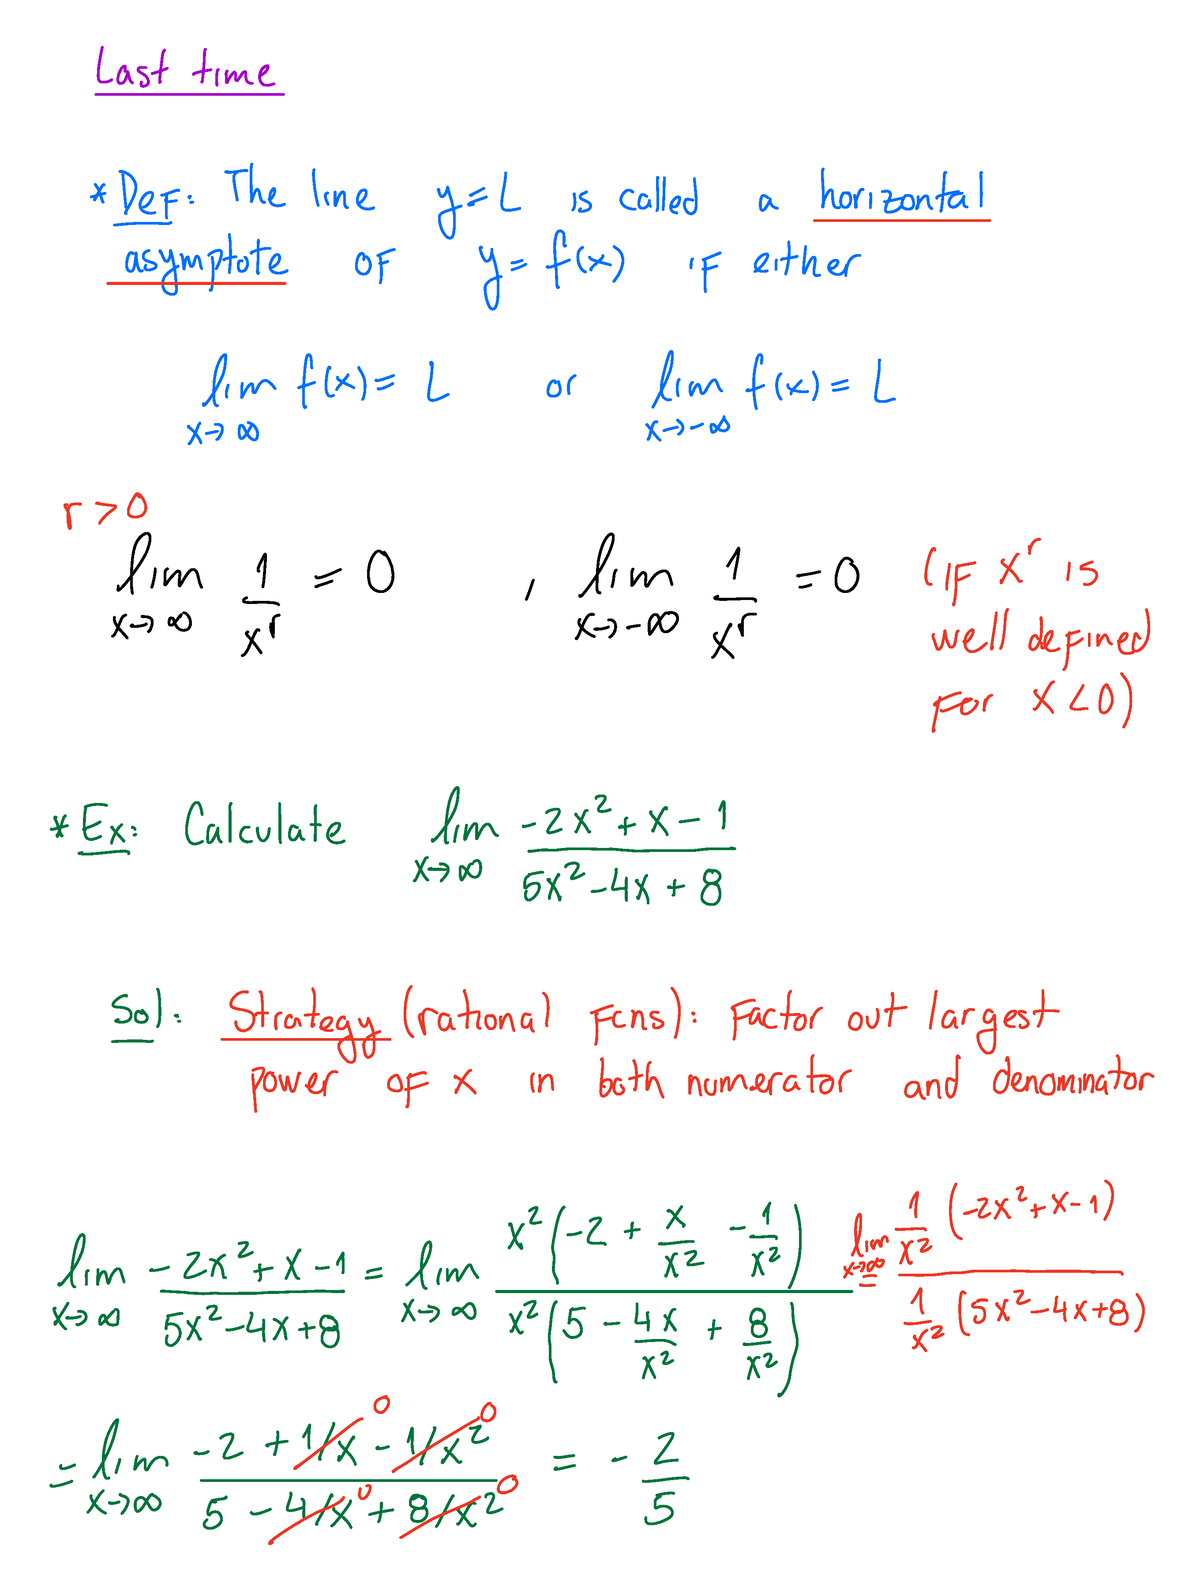 Last time
* Def: The line y=L is called a horizontal
asymptote of y=f(x) if either
lim x→∞ f(x) = L or lim x→-∞ f(x) = L
r>0
lim x→∞ 1/x^r = 0 , lim x→-∞ 1/x^r = 0 (if x^r is
well defined
for x<0)
* Ex: Calculate lim x→∞ (-2x²+x-1)/(5x²-4x+8)
Sol: Strategy (rational fcns): Factor out largest
power of x in both numerator and denominator
lim x→∞ (-2x²+x-1)/(5x²-4x+8) = lim x→∞ x²(-2 + x/x² - 1/x²)/x²(5 - 4x/x² + 8/x²) = lim x→∞ 1/x² (-2x²+x-1)/1/x² (5x²-4x+8)
= lim x→∞ (-2 + 1/x⁰ - 1/x²⁰)/(5 - 4/x⁰ + 8/x²⁰) = - 2/5